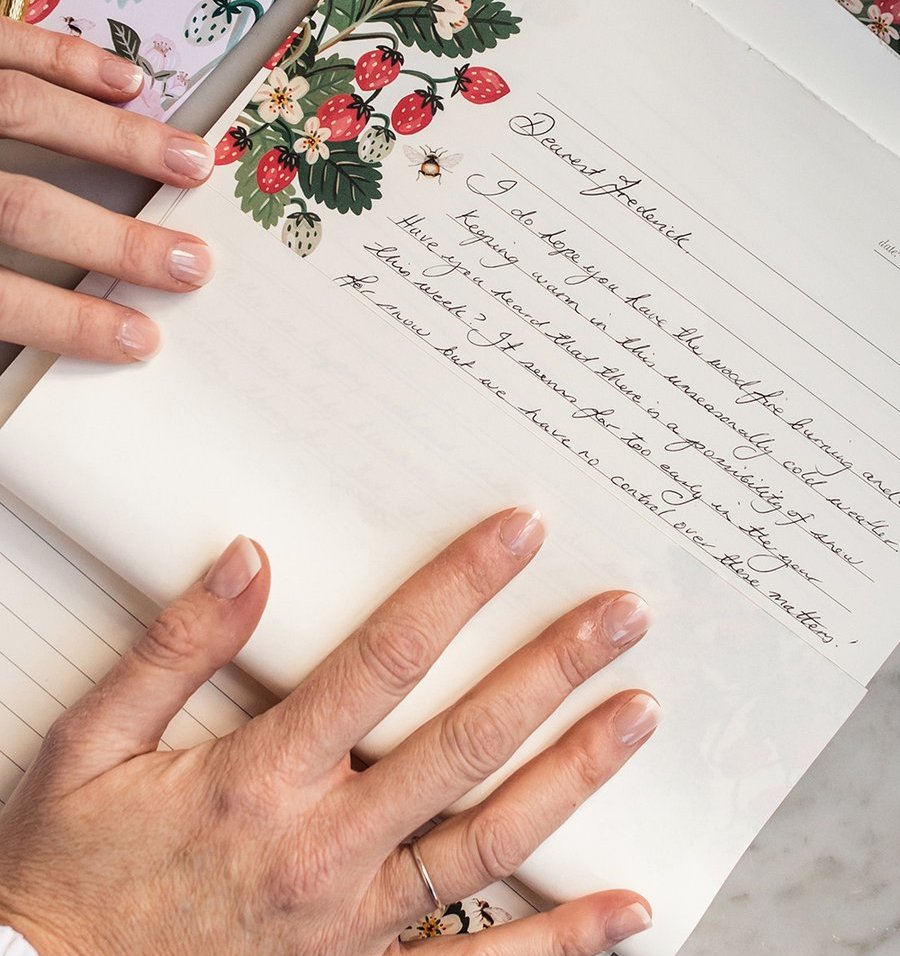 date
Dearest Frederick
I do hope you have the wood fire burning and
Keeping warm in this unseasonally cold weather.
Have you heard that there is a possibility of snow
this week? It seems far too early in the year
for snow but we have no control over these matters!